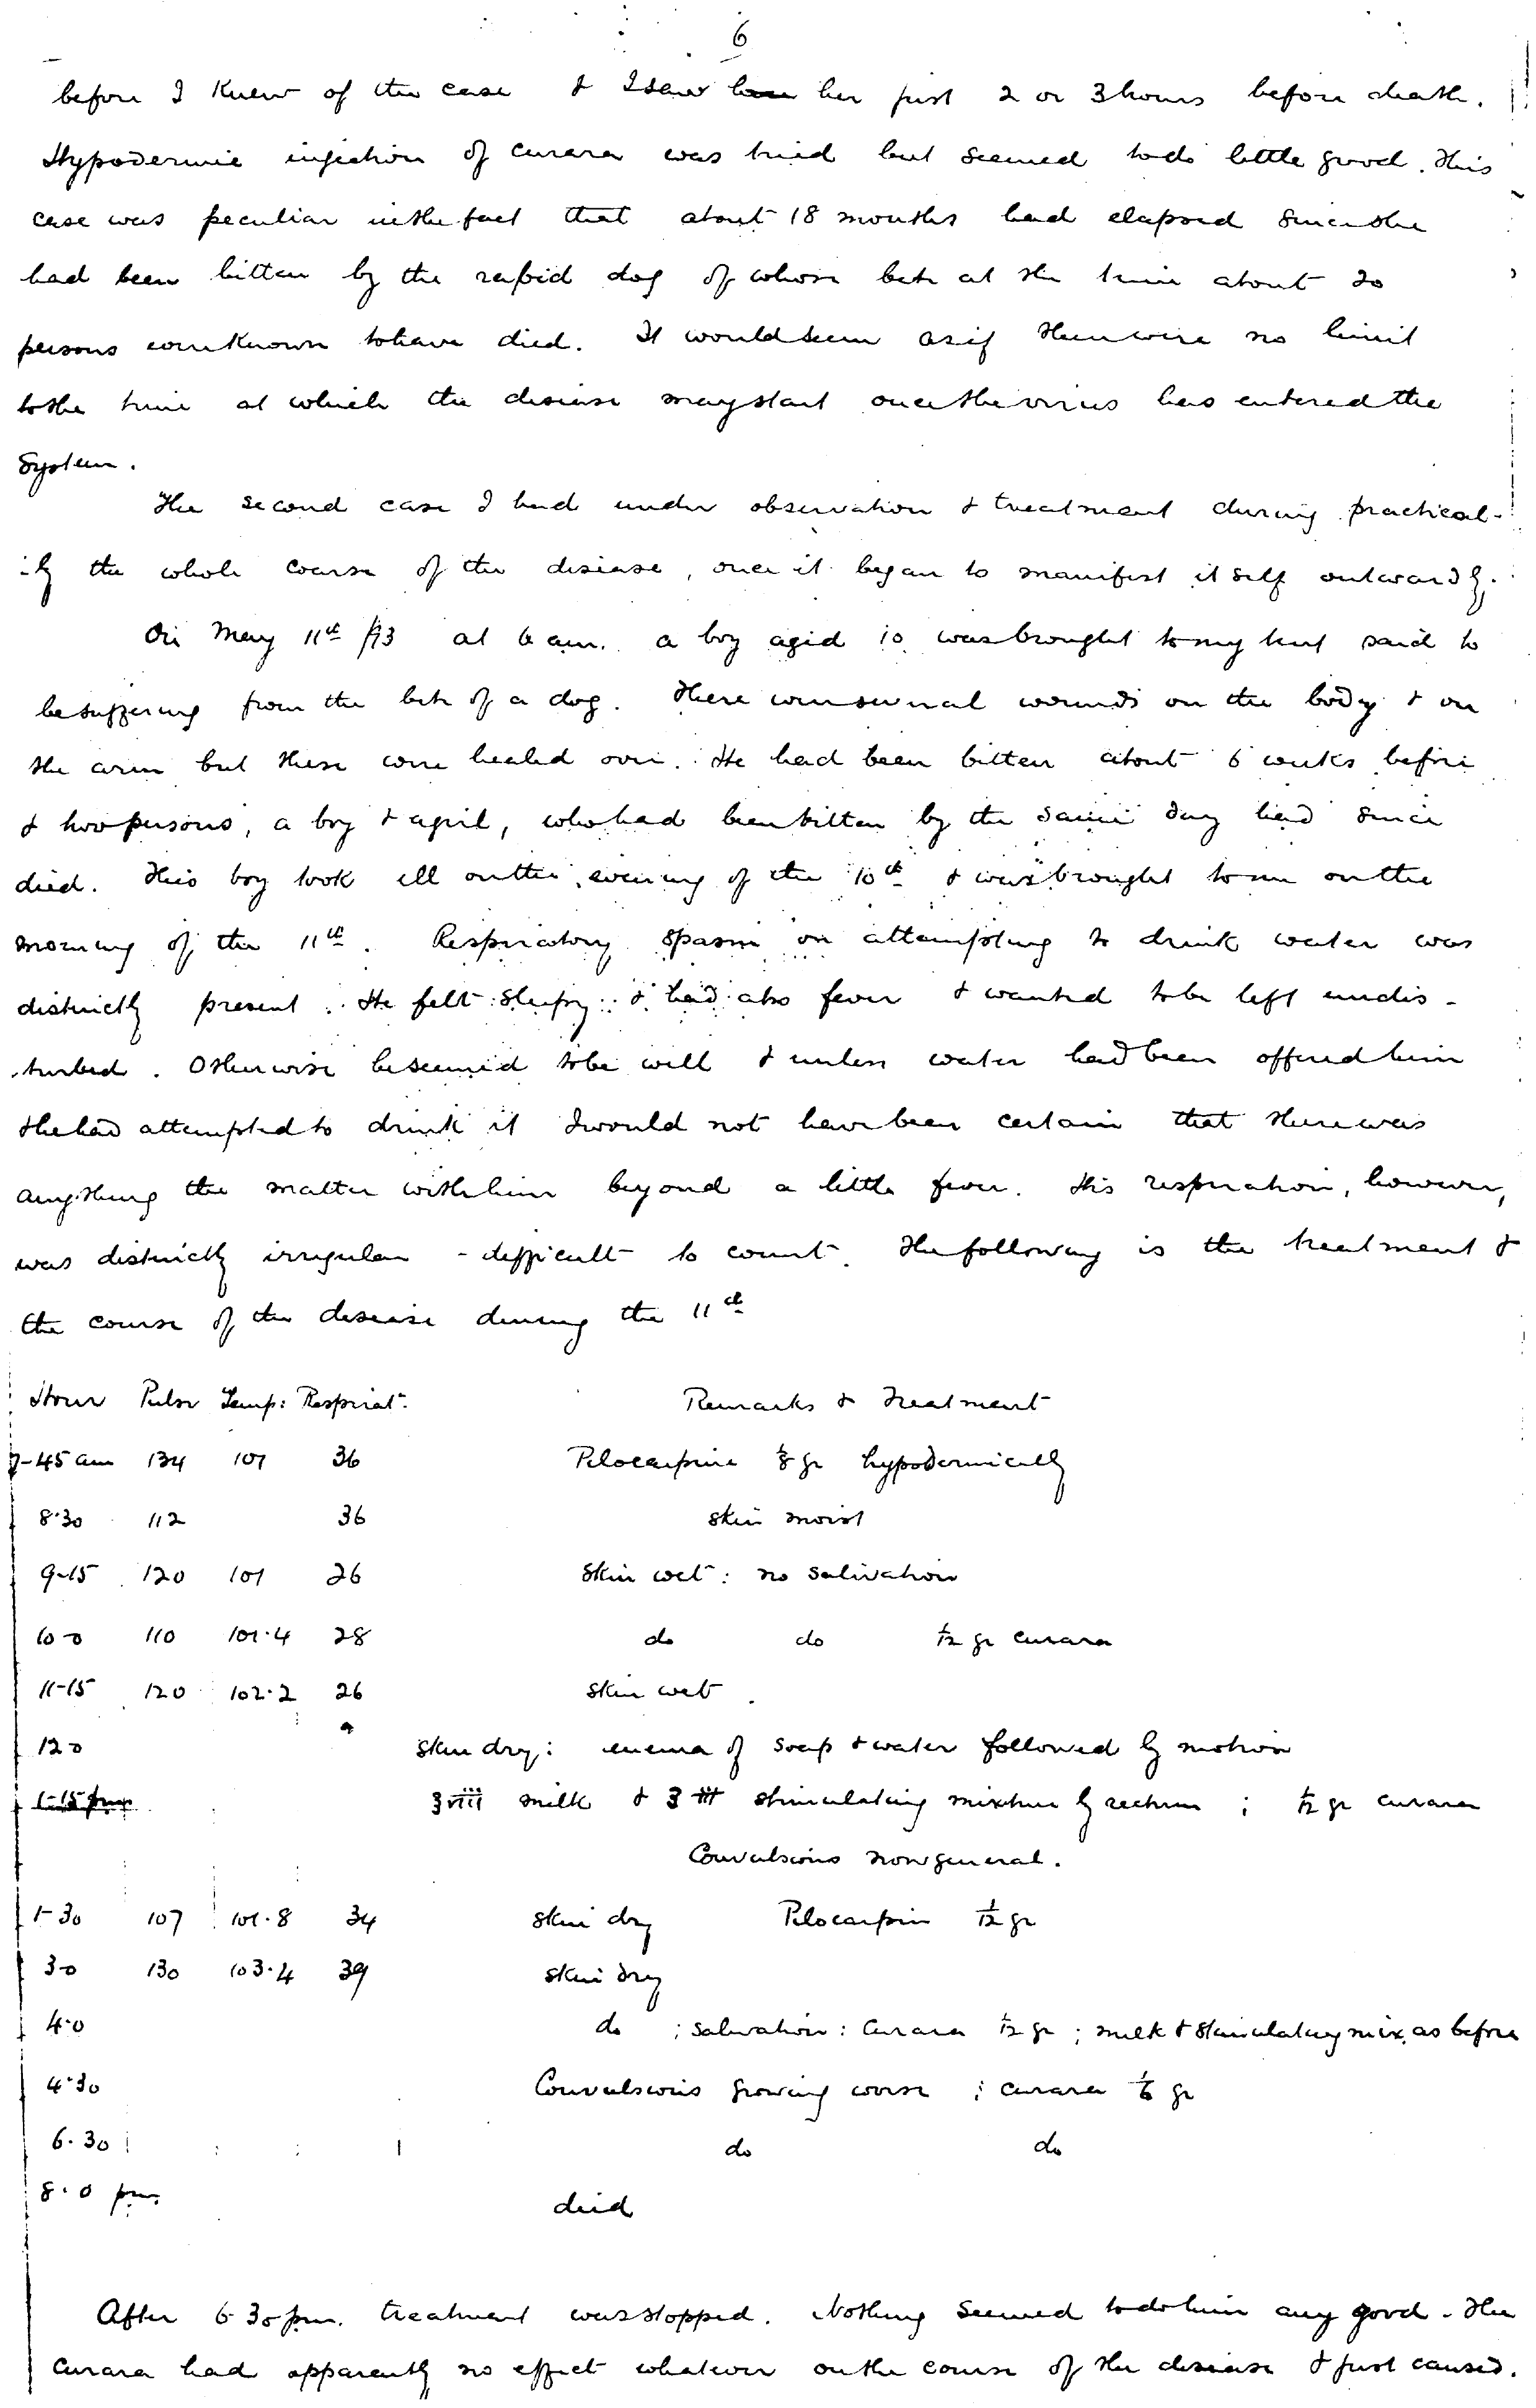 6
before I knew of the case & I saw her just 2 or 3 hours before death.
Hypodermic injection of curara was tried but seemed to do little good. This
case was peculiar in the fact that about 18 months had elapsed since she
had been bitten by the rabid dog of whose bite at the time about 20
persons were known to have died. It would seem as if there were no limit
to the time at which the disease may start once the virus has entered the
System.
The second case I had under observation & treatment during practical-
-ly the whole course of the disease, once it began to manifest itself outwardly.
On May 11th /93 at 6 am. a boy aged 10 was brought to my tent said to
be suffering from the bite of a dog. There were several wounds on the body & on
the arm but these were healed over. He had been bitten about 6 weeks before
& two persons, a boy & a girl, who had been bitten by the same day had since
died. This boy took ill on the evening of the 10th & was brought to me on the
morning of the 11th. Respiratory spasm on attempting to drink water was
distinctly present. He felt sleepy & had also fever & wanted to be left undis-
-turbed. Otherwise he seemed to be well & unless water had been offered him
& he had attempted to drink it I would not have been certain that there was
anything the matter with him beyond a little fever. His respiration, however,
was distinctly irregular - difficult to count. The following is the treatment &
the course of the disease during the 11th
Hour Pulse Temp: Respirat. Remarks & Treatment
7-45 am 134 101 36 Pilocarpine 1/8 gr hypodermically
8.30 112 36 Skin moist
9-15 120 101 26 Skin wet: no salivation
10-0 110 101.4 28 do do 1/12 gr curara
11-15 120 102.2 26 Skin wet
12-0 Skin dry: enema of soap & water followed by motion
1-15 pm ʒviii milk & ʒiii stimulating mixture by rectum; 1/12 gr curara
Convulsions now general.
1-30 107 101.8 34 Skin dry Pilocarpin 1/12 gr
3-0 130 103.4 39 Skin dry
4.0 do ; Salivation: Curara 1/12 gr; milk & stimulating mix. as before
4.30 Convulsions growing worse; curara 1/6 gr
6.30 do do
8.0 pm. died
After 6-30 pm. treatment was stopped. Nothing seemed to do him any good. The
Curara had apparently no effect whatever on the course of the disease & just caused.